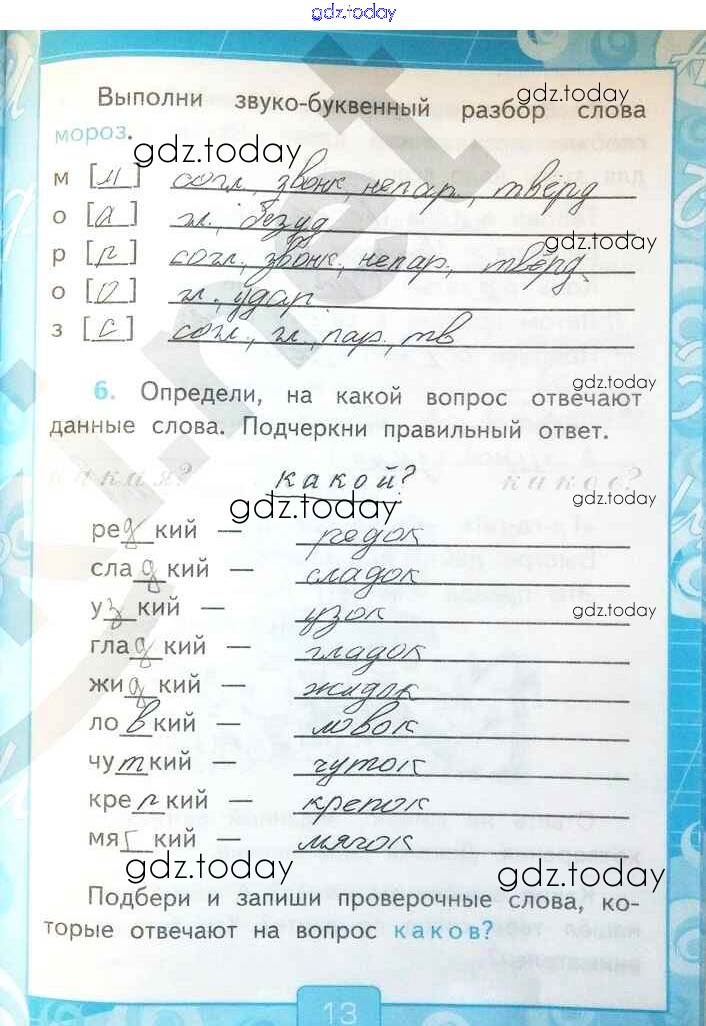 gdz.today
Выполни звуко-буквенный разбор слова gdz.today
мороз.
gdz.today
м [м] согл., звонк, непар., твёрд
о [а] гл., безуд
gdz.today
р [р] согл., звонк., непар., твёрд.
о [о] гл., удар.
з [с] согл., гл., пар., тв
gdz.today
6. Определи, на какой вопрос отвечают
данные слова. Подчеркни правильный ответ.
какая? какой? какое?
gdz.today gdz.today
редкий — редок
сладкий — сладок
узкий — узок gdz.today
гладкий — гладок
жидкий — жидок
ловкий — ловок
чуткий — чуток
крепкий — крепок
мягкий — мягок
gdz.today gdz.today
Подбери и запиши проверочные слова, ко-
торые отвечают на вопрос каков?
13